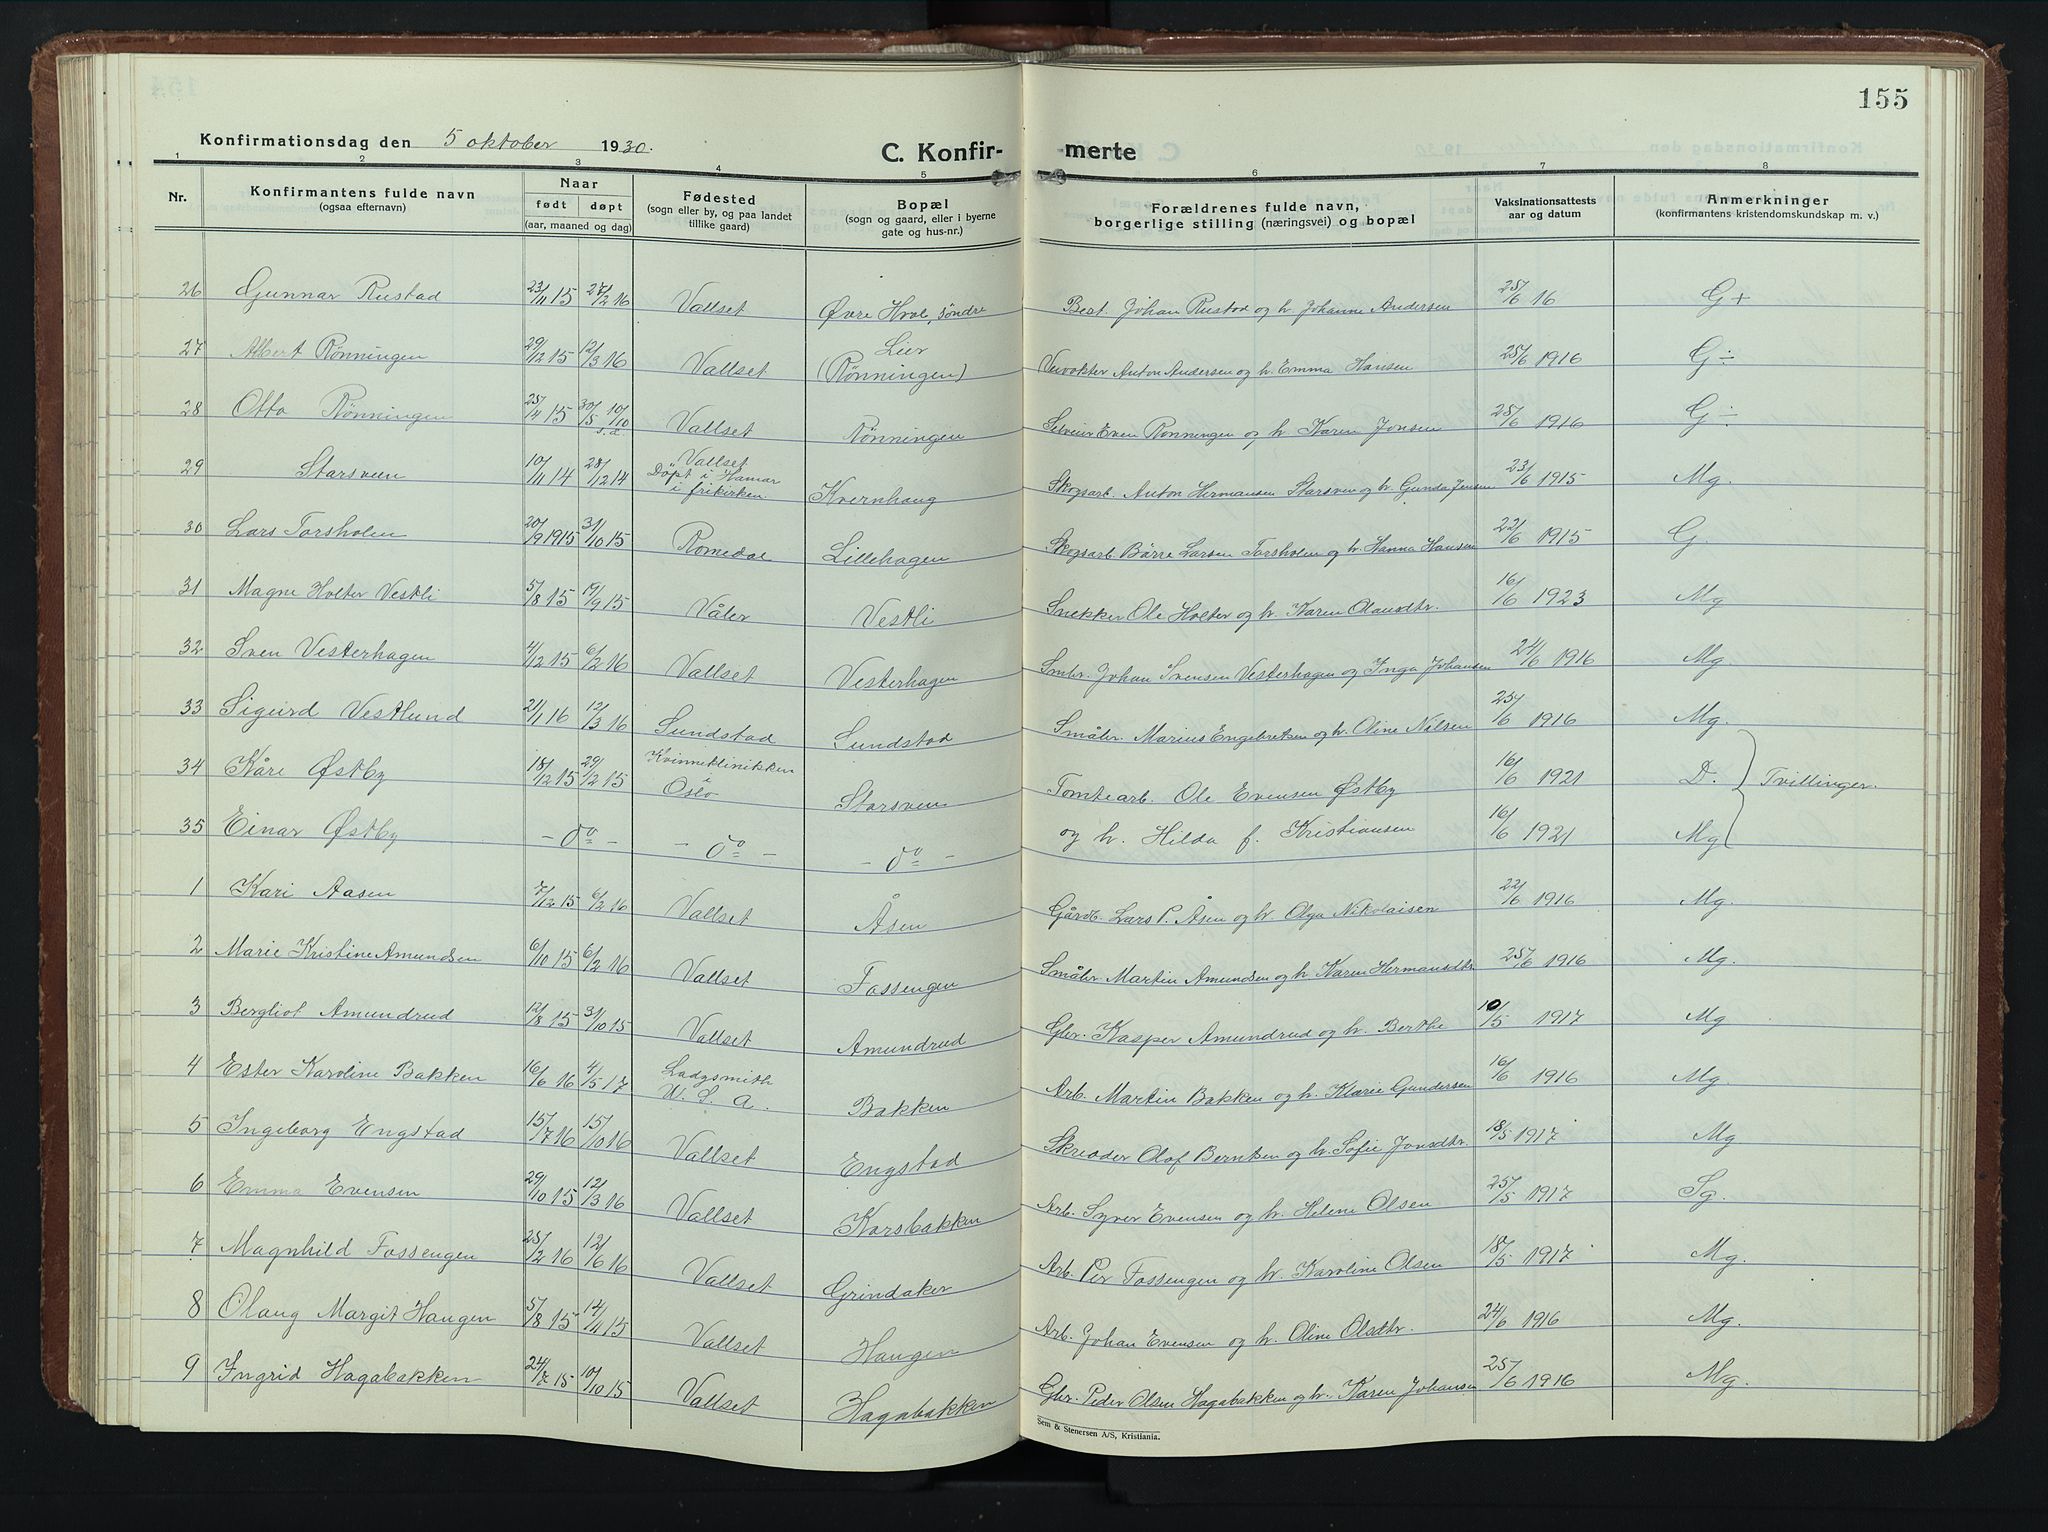 155
Konfirmationsdag den 5 oktober 1930.
C. Konfir- merte
1 2 3 4 5 6 7 8
Nr. Konfirmantens fulde navn (ogsaa efternavn) Naar født døpt (aar, maaned og dag) Fødested (sogn eller by, og paa landet tillike gaard) Bopæl (sogn og gaard, eller i byerne gate og hus-nr.) Forældrenes fulde navn, borgerlige stilling (næringsvei) og bopæl Vaksinationsattests aar og datum Anmerkninger (konfirmantens kristendomskundskap m. v.)
26 Gunnar Rustad 23/11 15 27/2 16 Vallset Øvre Hvol, søndre Best. Johan Rustad og h. Johanne Andersen 25/6 16 G+
27 Albert Rønningen 29/12 15 12/3 16 Vallset Lier (Rønningen) Veivokter Anton Andersen og h. Emma Hansen 25/6 1916 G÷
28 Otto Rønningen 25/4 15 30/5 10/10 s.d. Vallset Rønningen Even Rønningen og h. Karen Jonsen 25/6 1916 G÷
29 Starsveen 10/11 14 28/12 14 Vallset Döpt i Hamar i frikirken Kvernhaug Skogsarb. Anton Hermansen Starsven og h. Gunda Jensen 23/6 1915 Mg.
30 Lars Torsholen 20/9 1915 31/10 15 Romedal Lillehagen Skogsarb. Börre Larsen Torsholen og h. Hanna Hansen 22/6 1915 G.
31 Magne Holter Vestli 5/8 15 19/9 15 Våler Vestli Snekker Ole Holter og h. Karen Olausdtr. 16/6 1923 Mg
32 Sven Vesterhagen 4/12 15 6/2 16 Vallset Vesterhagen Smbr. Johan Svensen Vesterhagen og Inga Johansen 24/6 1916 Mg
33 Sigurd Vestlund 21/1 16 12/3 16 Sundstad Sundstad Småbr. Marius Engebretsen og h. Oline Nilsen 25/6 1916 Mg.
34 Kåre Østby 18/12 15 29/12 15 Kvinneklinikken i Oslo Starsveen Tomtearb. Ole Evensen Østby 16/6 1921 D. Tvillinger.
35 Einar Østby - do - - do - - do - og h. Hilda f. Kristiansen 16/6 1921 Mg
1 Kari Aasen 7/12 15 6/2 16 Vallset Åsen Gårdb. Lars P. Åsen og h. Olga Nikolaisen 22/6 1916 Mg.
2 Marie Kristine Amundsen 6/10 15 6/2 16 Vallset Fossengen Småbr. Martin Amundsen og h. Karen Hermansdtr 25/6 1916 Mg.
3 Bergliot Amundrud 12/8 15 31/10 15 Vallset Amundrud Gbr. Kasper Amundrud og h. Berthe 10/5 1917 Mg
4 Ester Karoline Bakken 16/6 16 4/5 17 Ladysmith U. S. A. Bakken Arb. Martin Bakken og h. Klara Gundersen 16/6 1916 Mg.
5 Ingeborg Engstad 15/7 16 15/10 16 Vallset Engstad Skredder Olaf Berntsen og h. Sofie Jonsdtr. 18/5 1917 Mg
6 Emma Evensen 29/10 15 12/3 16 Vallset Korsbakken Arb. Syver Evensen og h. Helene Olsen 25/5 1917 Sg.
7 Magnhild Fossengen 25/2 16 12/6 16 Vallset Grindaker Arb. Per Fossengen og h. Karoline Olsen 18/5 1917 Mg.
8 Olaug Margit Haugen 5/8 15 14/11 15 Vallset Haugen Arb. Johan Evensen og h. Oline Olsdtr. 24/6 1916 Mg.
9 Ingrid Hagabakken 24/7 15 10/10 15 Vallset Hagabakken Gbr. Peder Olsen Hagabakken og h. Karen Johansen 25/6 1916 Mg.
Sem & Stenersen A/S, Kristiania.